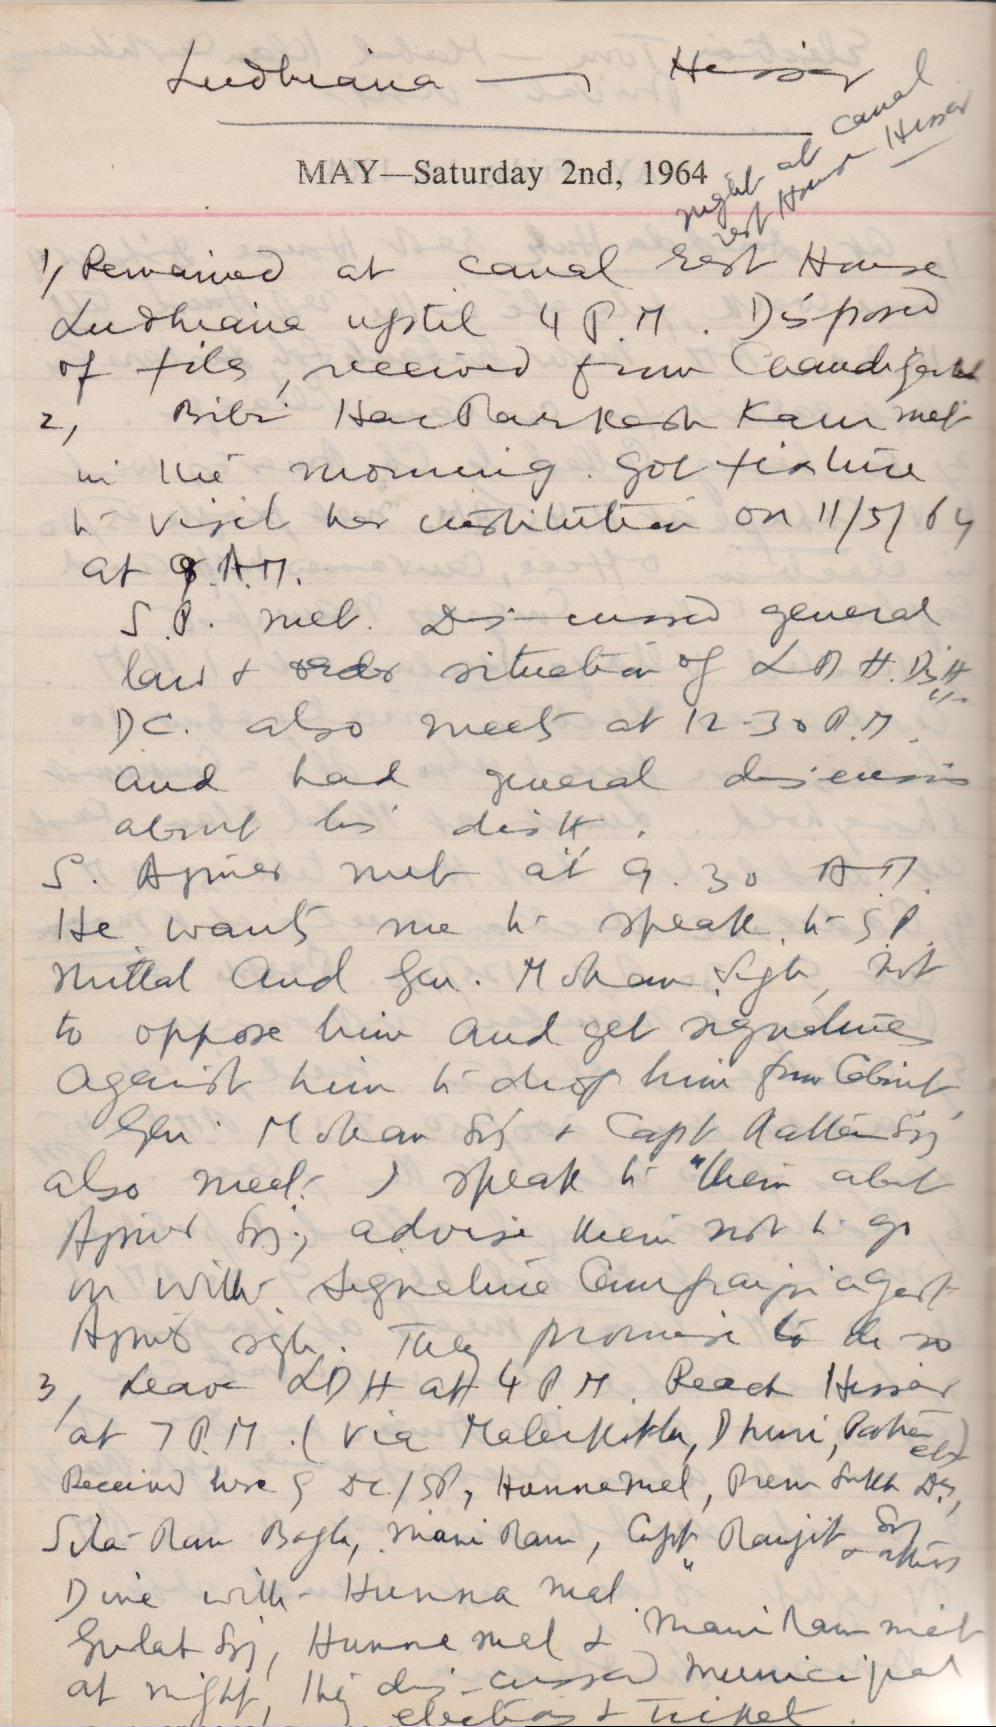 Ludhiana — Hissar
night at canal
rest House Hissar
MAY—Saturday 2nd, 1964
1, Remained at canal Rest House
Ludhiana uptil 4 P.M. Disposed
of files, received from Chandigarh
2, Bibi Har Parkash Kaur met
in the morning. Got fixture
to visit her institution on 11/5/64
at 9. A.M.
S.P. met. Discussed general
law & order situation of LDH. Distt
D.C. also meets at 12-30 P.M.
and had general discussion
about his distt.
S. Ajmer met at 9.30 A.M.
He wants me to speak to S.P.
Mittal and Gen. Mohan Sgh, not
to oppose him and get signatures
against him to drop him from Cabinet
Gen. Mohan Sgh & Capt Rattan Sgh
also meet. I speak to them about
Ajmer Sgh, advise them not to go
on with signature Campaign agast
Ajmer sgh. They promise to do so
3, Leave LDH at 4 P.M. Reach Hissar
at 7 P.M. (via Malerkotla, Dhuri, etc)
Received here by DC/SP, Hunnamal, Prem Sukh Das,
Sita Ram Bagla, Mani Ram, Capt Ranjit Sgh & others
Dine with Hunna mal.
Gulab Sgh, Hunna mal & Mani Ram met
at night, they discussed municipal
elections & Ticket.